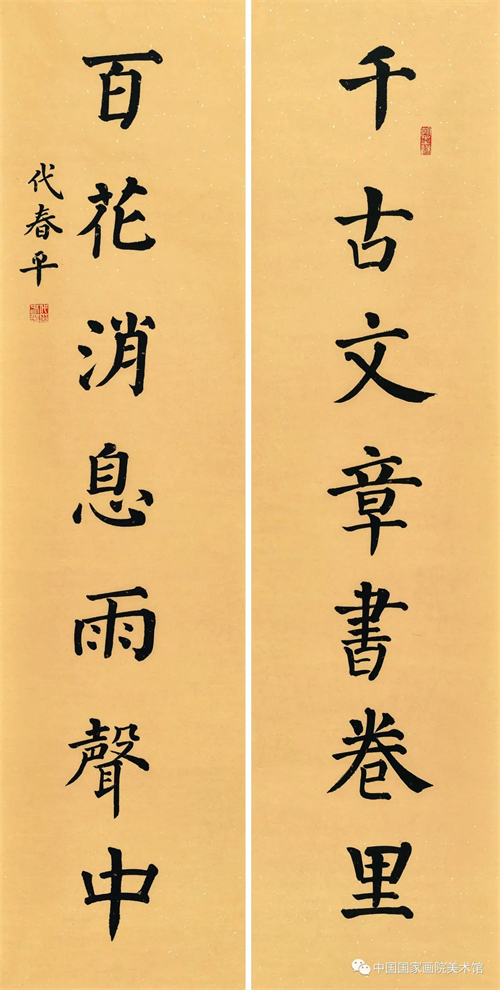 千古文章書卷里
百花消息雨聲中
代春平
中国国家画院美术馆